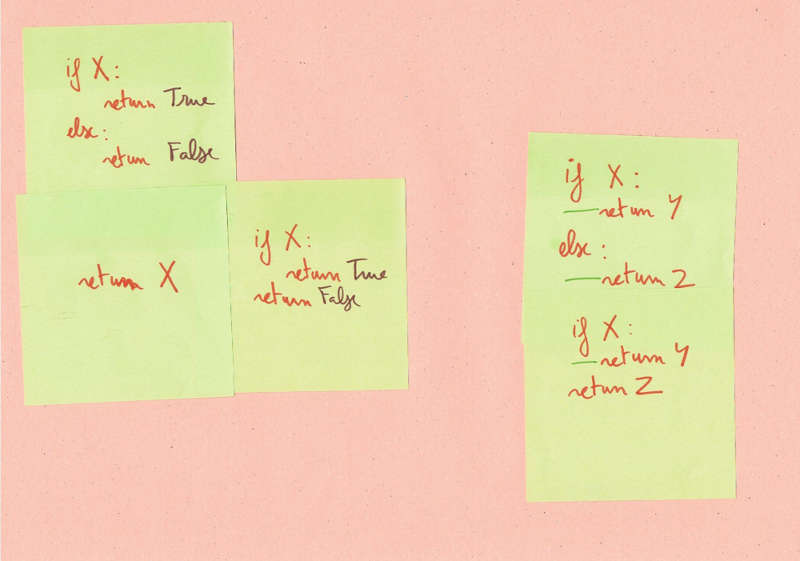 if X:
return True
else:
return False
return X
if X:
return True
return False
if X:
return Y
else:
return Z
if X:
return Y
return Z